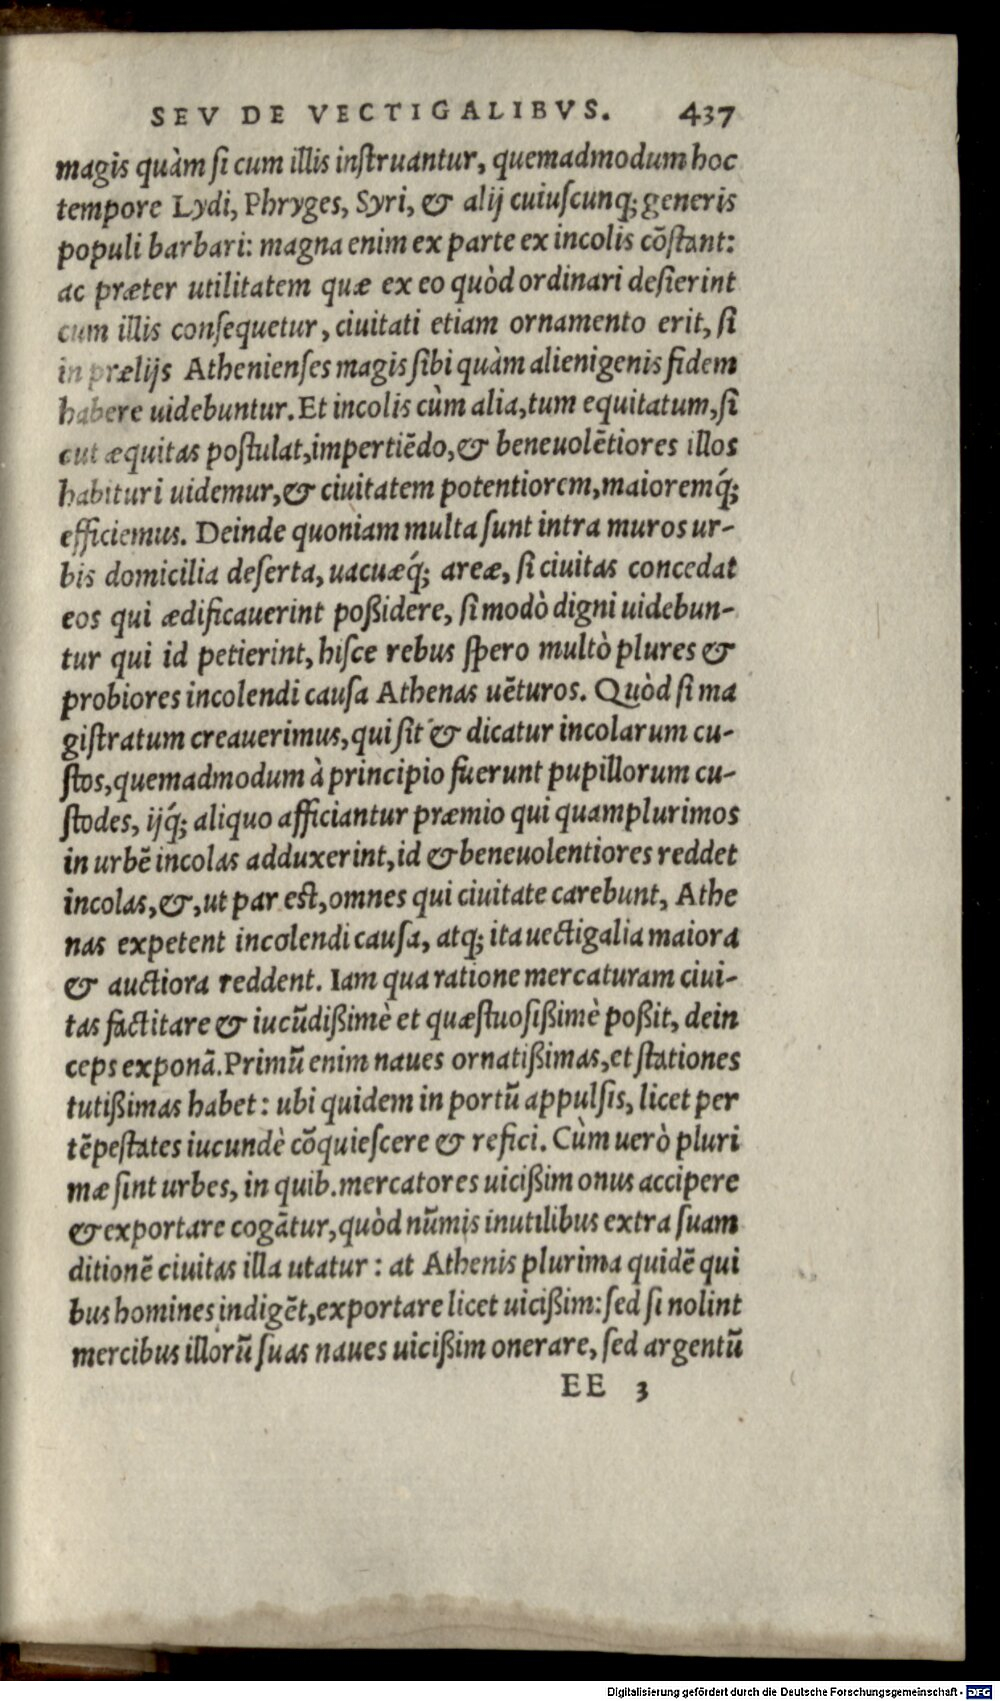 SEV DE VECTIGALIBVS. 437
magis quàm si cum illis instruantur, quemadmodum hoc
tempore Lydi, Phryges, Syri, & alij cuiuscunq; generis
populi barbari: magna enim ex parte ex incolis cõstant:
ac præter utilitatem quæ ex eo quòd ordinari desierint
cum illis consequetur, ciuitati etiam ornamento erit, si
in prælijs Athenienses magis sibi quàm alienigenis fidem
habere uidebuntur. Et incolis cùm alia, tum equitatum, si
cut æquitas postulat, impertiẽdo, & beneuolẽtiores illos
habituri uidemur, & ciuitatem potentiorem, maioremq́;
efficiemus. Deinde quoniam multa sunt intra muros ur-
bis domicilia deserta, uacuæq́; areæ, si ciuitas concedat
eos qui ædificauerint poßidere, si modò digni uidebun-
tur qui id petierint, hisce rebus spero multò plures &
probiores incolendi causa Athenas uẽturos. Quòd si ma
gistratum creauerimus, qui sit & dicatur incolarum cu-
stos, quemadmodum à principio fuerunt pupillorum cu-
stodes, ijq́; aliquo afficiantur præmio qui quamplurimos
in urbẽ incolas adduxerint, id & beneuolentiores reddet
incolas, &, ut par est, omnes qui ciuitate carebunt, Athe
nas expetent incolendi causa, atq; ita uectigalia maiora
& auctiora reddent. Iam qua ratione mercaturam ciui-
tas factitare & iucũdißimè et quæstuosißimè poßit, dein
ceps exponã. Primũ enim naues ornatißimas, et stationes
tutißimas habet: ubi quidem in portũ appulsis, licet per
tẽpestates iucundè cõquiescere & refici. Cùm uerò pluri
mæ sint urbes, in quib. mercatores uicißim onus accipere
& exportare cogãtur, quòd nũmis inutilibus extra suam
ditionẽ ciuitas illa utatur: at Athenis plurima quidẽ qui
bus homines indigẽt, exportare licet uicißim: sed si nolint
mercibus illorũ suas naues uicißim onerare, sed argentũ
EE 3
Digitalisierung gefördert durch die Deutsche Forschungsgemeinschaft - DFG